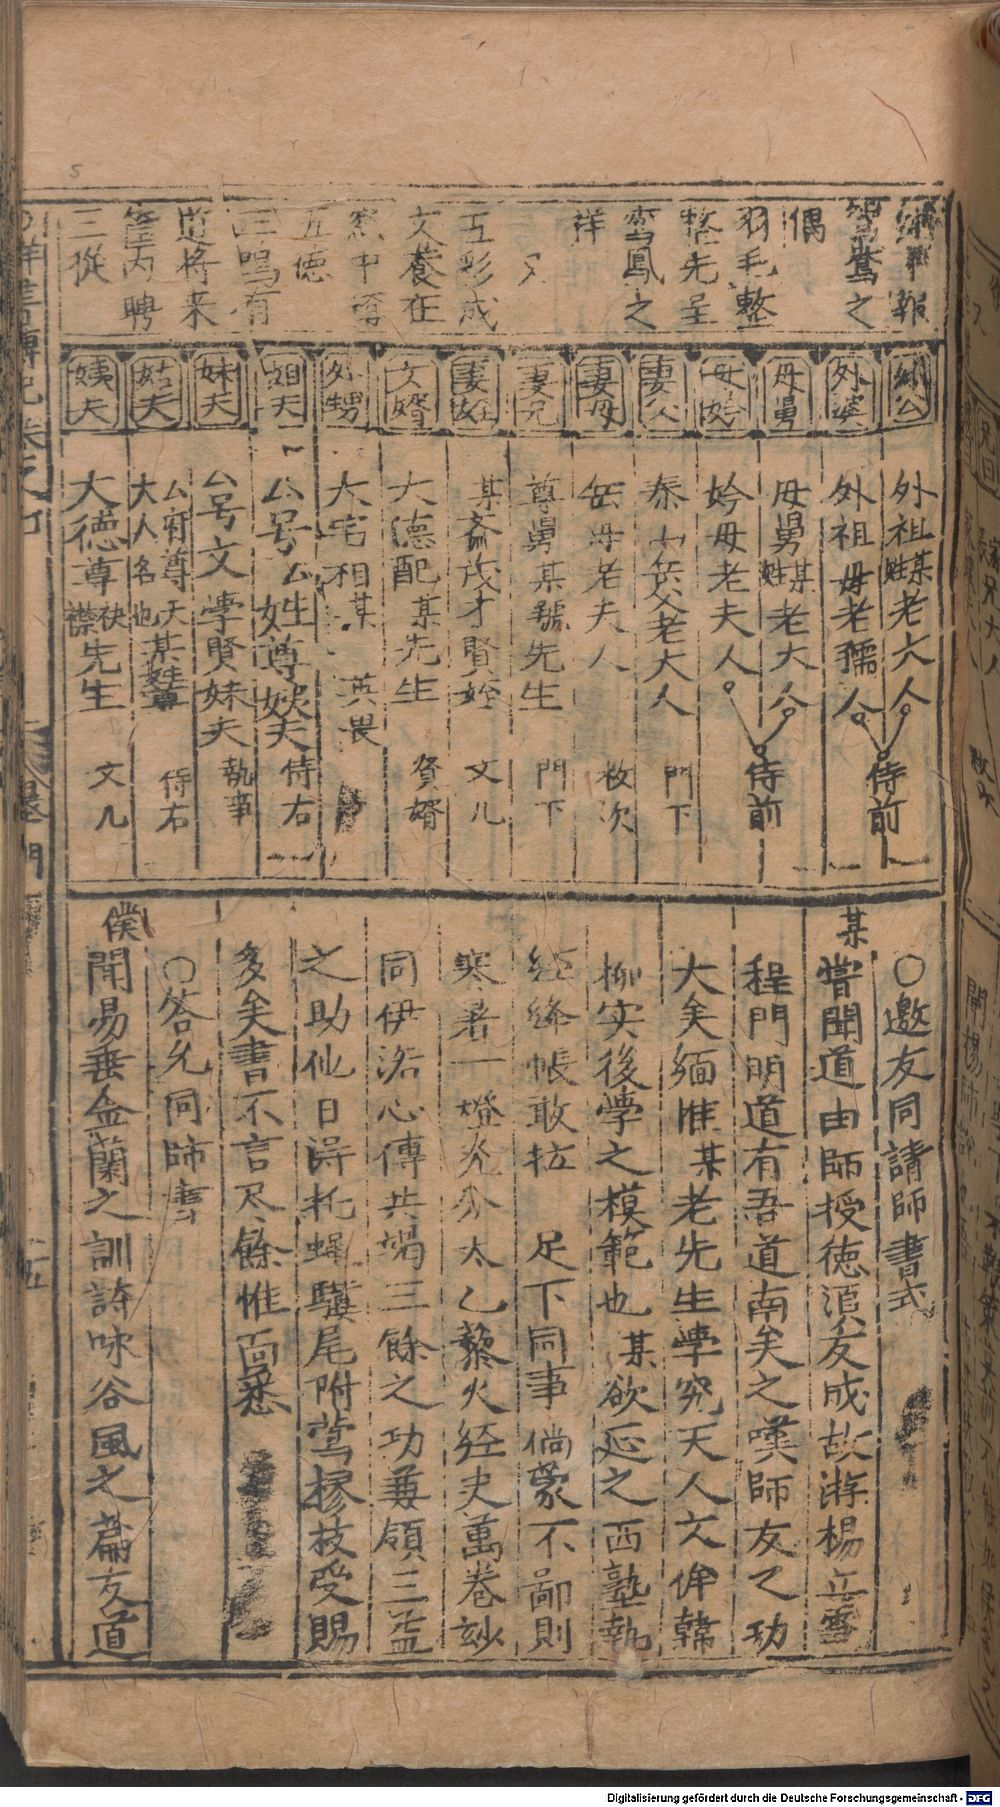 鴛鴦之
偶
羽毛整
整先呈
鸞鳳之
祥
五彩成
文養在
五德
三鳴有
道將来
三從
外公
外婆
母舅
母妗
妻父
妻母
妻兄
妻姪
女婿
外甥
姐夫
妹夫
姑夫
姨夫
外祖姓某老大人
外祖母老孺人
侍前
母舅姓某老大人
妗母老夫人
侍前
泰山岳父老大人 門下
岳母老夫人 妝次
尊舅某號先生 門下
某齋茂才賢姪 文几
大德配某先生 貧婿
大宅相某 英畏
厶号厶姓尊姐夫 侍右
厶号文學賢妹夫 執事
厶府尊大人名也某姓 侍右
大德尊袂襟先生 文几
○邀友同請師書式
某
嘗聞道由師授徳湏友成故游楊立雪
程門明道有吾道南矣之嘆師友之功
大矣緬惟某老先生學究天人文侔韓
柳实後學之模範也某欲延之西塾執
经絳帳敢拉 足下同事倘蒙不鄙則
寒暑一燈光分太乙藜火经史萬卷妙
同伊洛心傳共竭三餘之功兼領三益
之助他日得托蝇驥尾附鶯樛枝受賜
多矣書不言尽餘惟面悉
○答允同師書
僕
聞易垂金蘭之訓詩咏谷風之篇友道
五
Digitalisierung gefördert durch die Deutsche Forschungsgemeinschaft - DFG